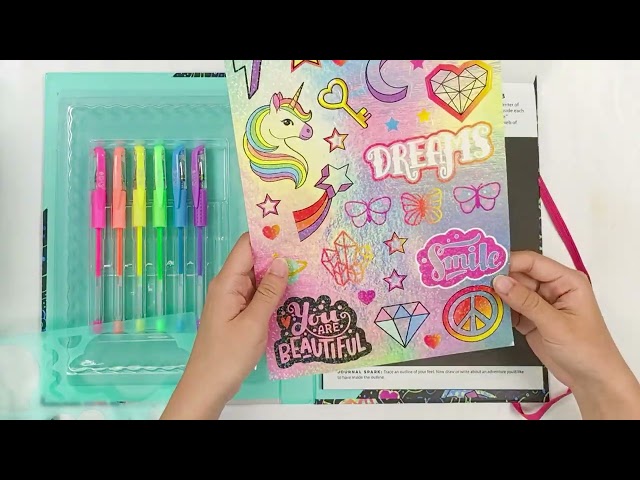 DREAMS
Smile
You
ARE
BEAUTIFUL
JOURNAL SPARK: Trace an outline of your feet. Now draw or write about an adventure you'd like
to have inside the outline.